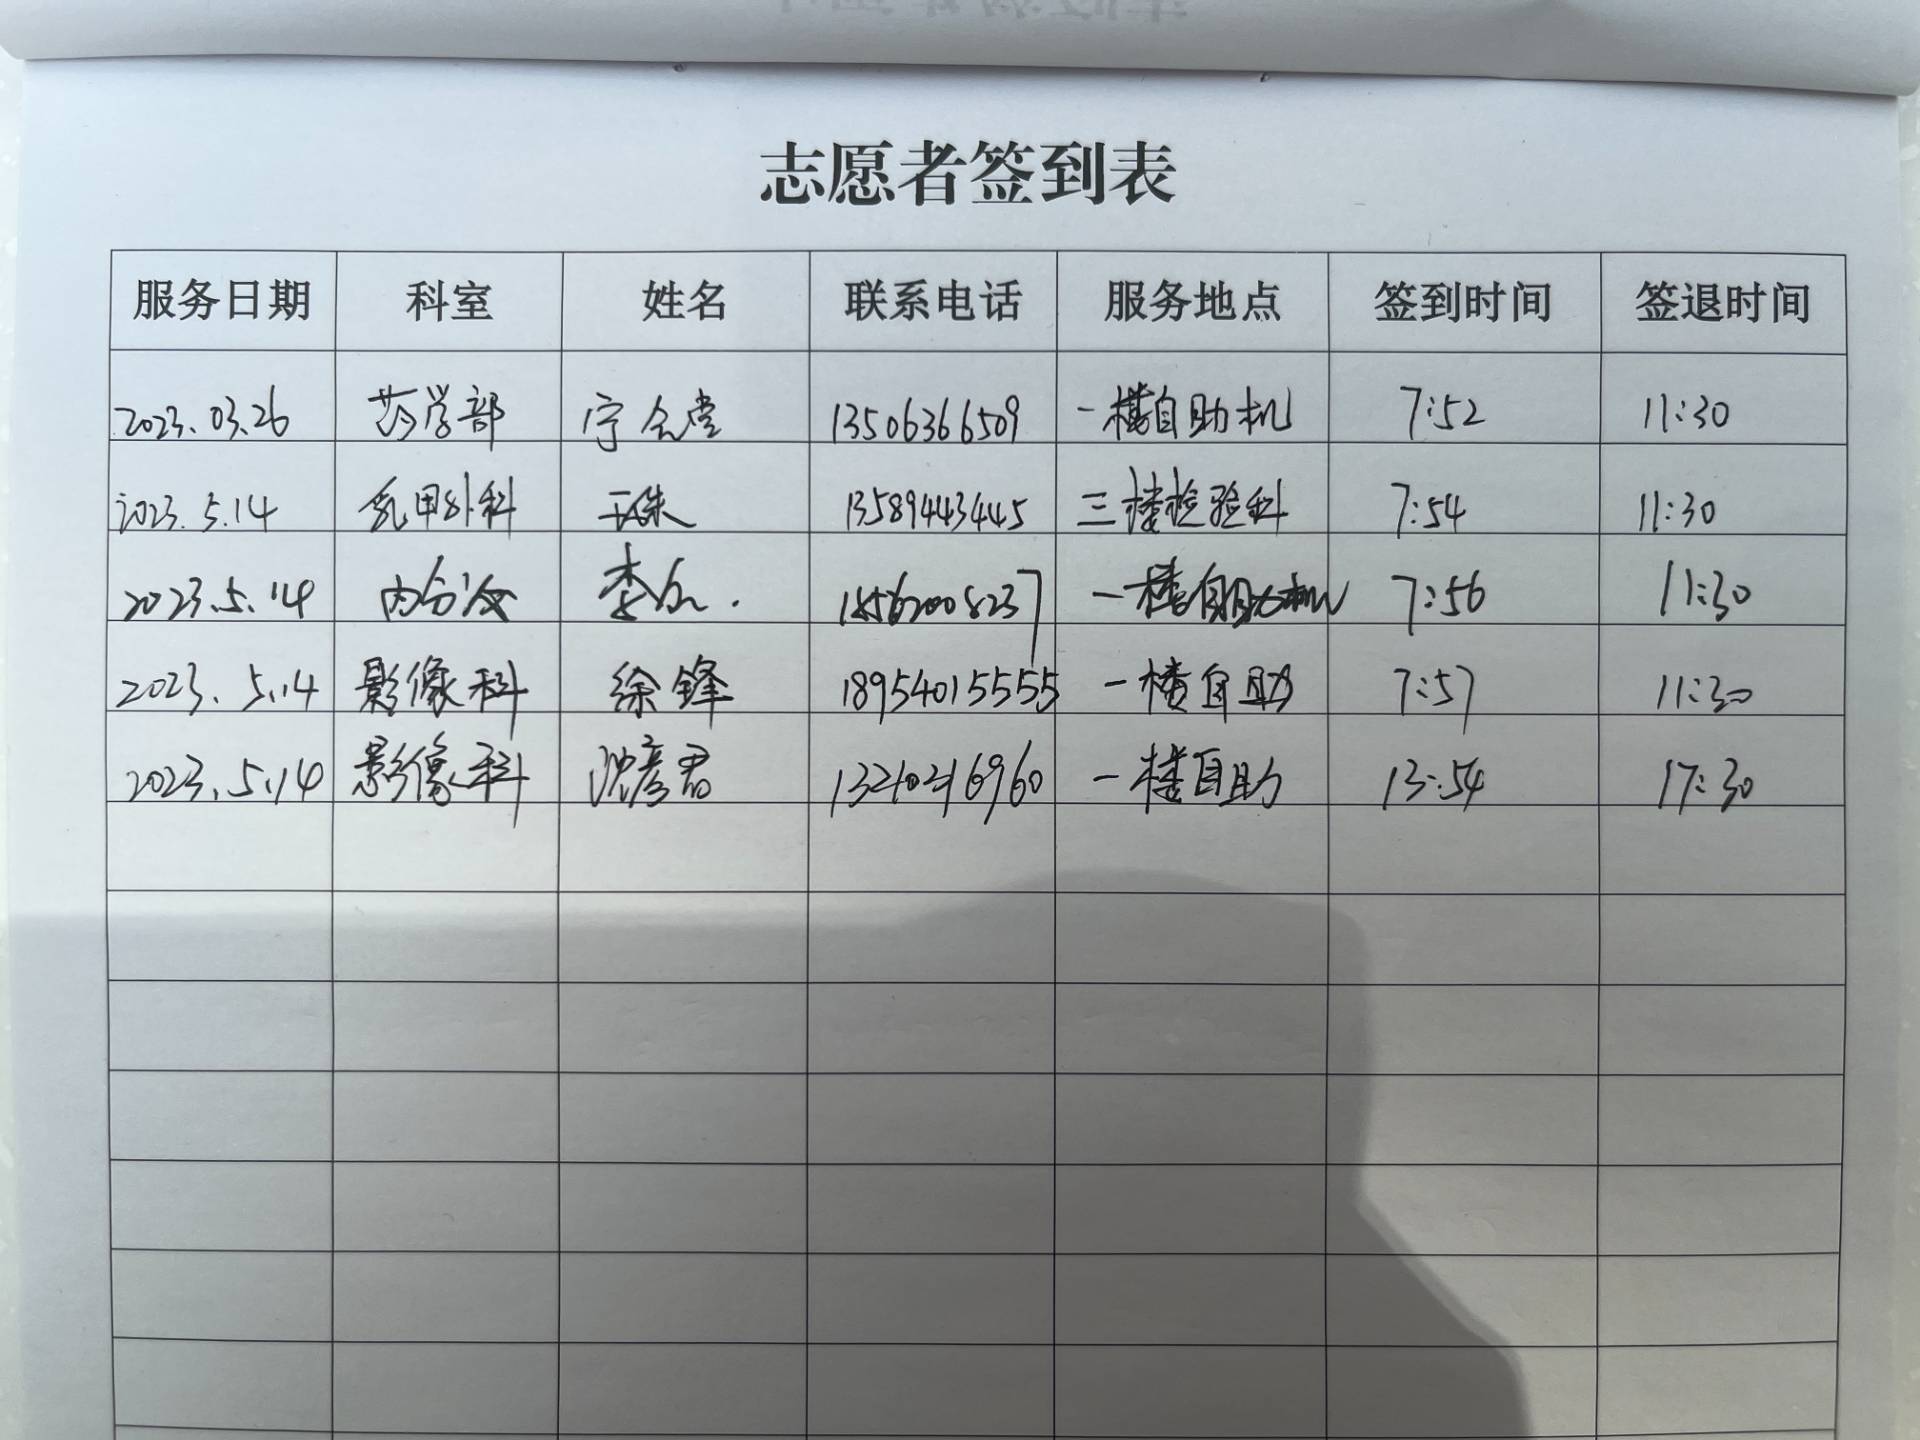 志愿者签到表
服务日期 科室 姓名 联系电话 服务地点 签到时间 签退时间
2023.03.26 药学部 13506366509 一楼自助机 7:52 11:30
2023.5.14 乳甲外科 13589443445 三楼检验科 7:54 11:30
2023.5.14 内分泌 一楼自助机 7:56 11:30
2023.5.14 影像科 徐锋 18954015555 一楼自助 7:57 11:30
2023.5.14 影像科 沈彦君 一楼自助 13:54 17:30